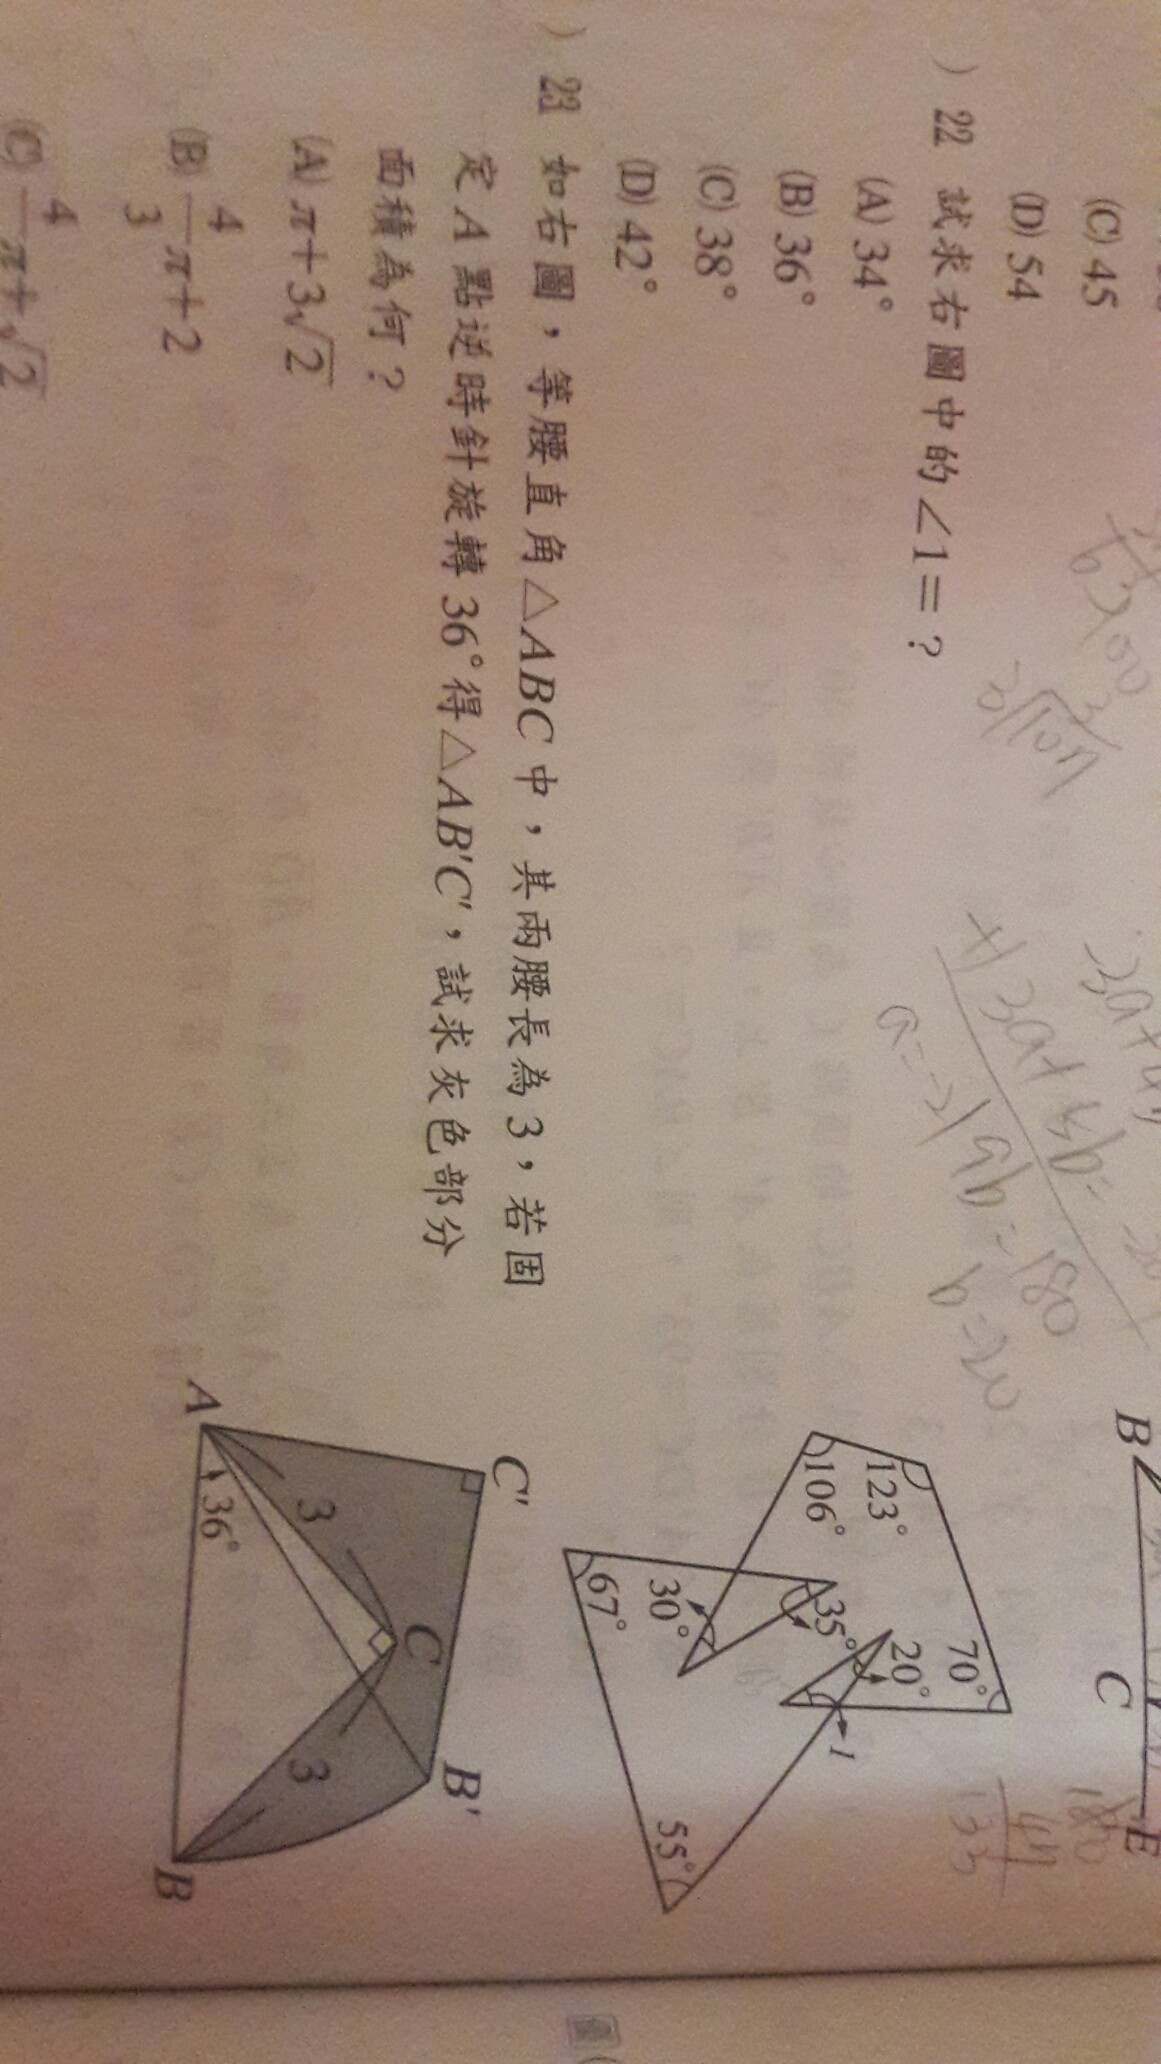 (C) 45
(D) 54
) 22 試求右圖中的∠1=?
(A) 34°
(B) 36°
(C) 38°
(D) 42°
123°
106°
70°
20°
35°
30°
67°
55°
1
) 23 如右圖，等腰直角△ABC中，其兩腰長為3，若固
定A點逆時針旋轉36°得△AB'C'，試求灰色部分
面積為何？
(A) π+3√2
(B) 4/3 π+2
(C) 4/ π+√2
A
B
C
B'
C'
3
3
36°
B
C
E
a=-21
9b=180
b=20